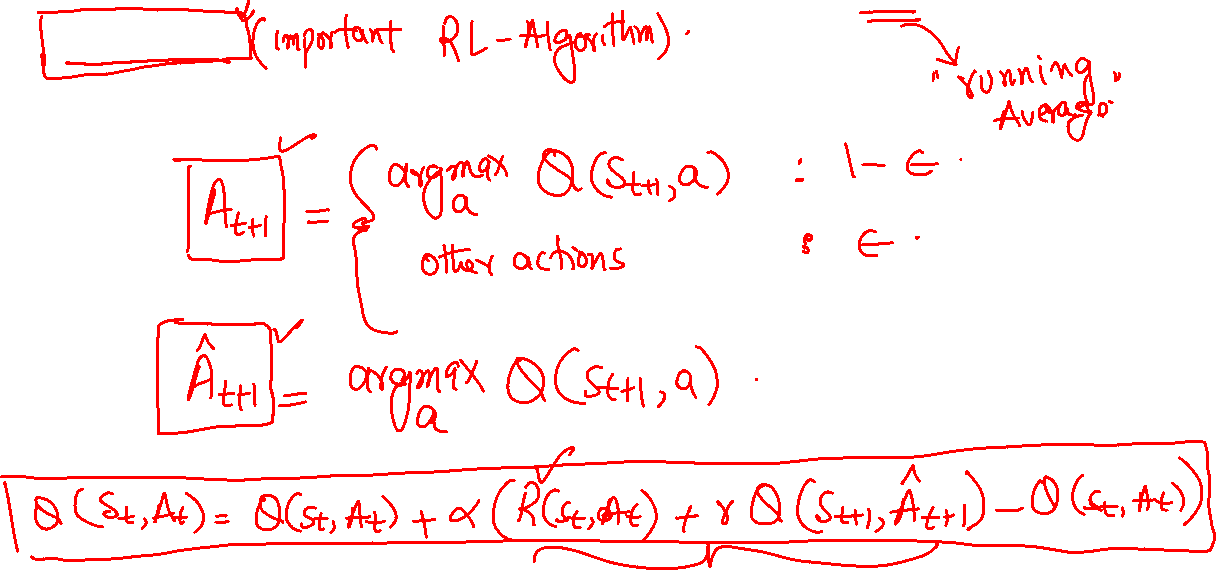 (important RL-Algorithm).
"running Average"
A_{t+1} = { argmax_a Q(S_{t+1}, a) : 1-ϵ.
other actions : ϵ.
Â_{t+1} = argmax_a Q(S_{t+1}, a).
Q(S_t, A_t) = Q(S_t, A_t) + α(R(S_t, A_t) + γ Q(S_{t+1}, Â_{t+1}) - Q(S_t, A_t))